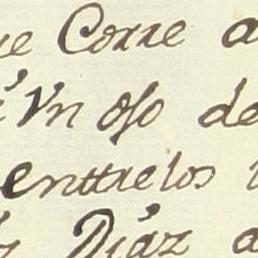 ue Corre a
Vn oso de
enttre los
Díaz a